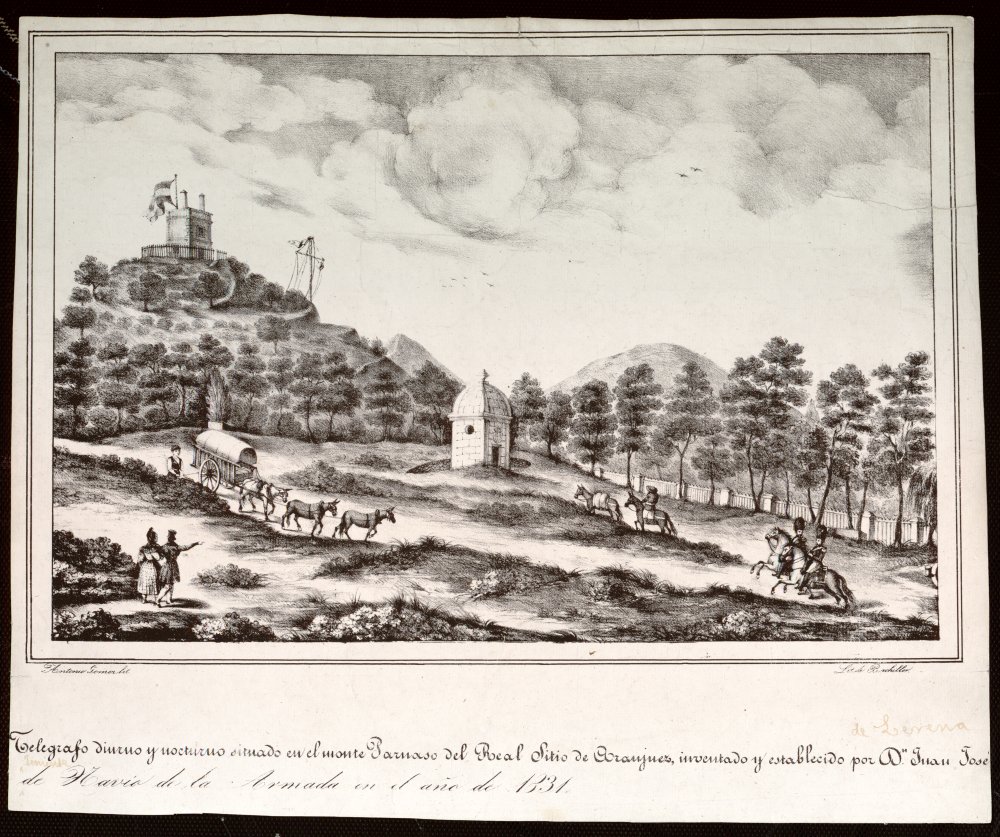 Antonio Gomez lit.
Lit. de Bachiller.
de Lerena
Telegrafo diurno y nocturno situado en el monte Parnaso del Real Sitio de Aranjuez, inventado y establecido por Dn. Juan José
teniente
de Navio de la Armada en el año de 1831.